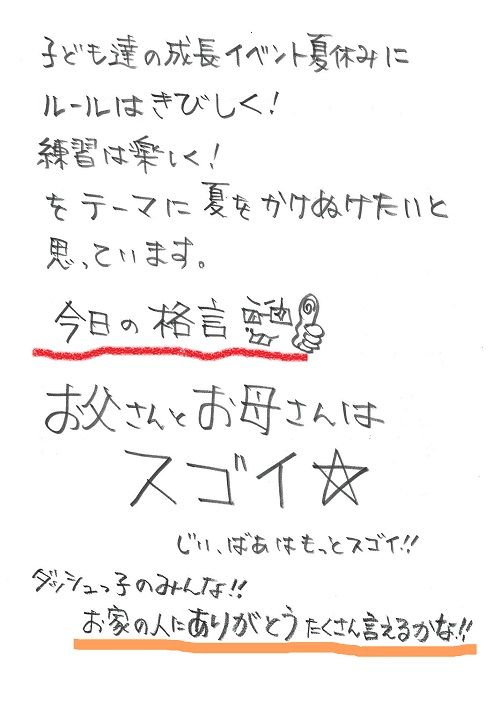 子ども達の成長イベント夏休みに
ルールはきびしく!
練習は楽しく!
をテーマに夏をかけぬけたいと
思っています。
今日の格言
お父さんとお母さんは
スゴイ☆
じい、ばあはもっとスゴイ!!
ダッシュっ子のみんな!!
お家の人にありがとうたくさん言えるかな!!